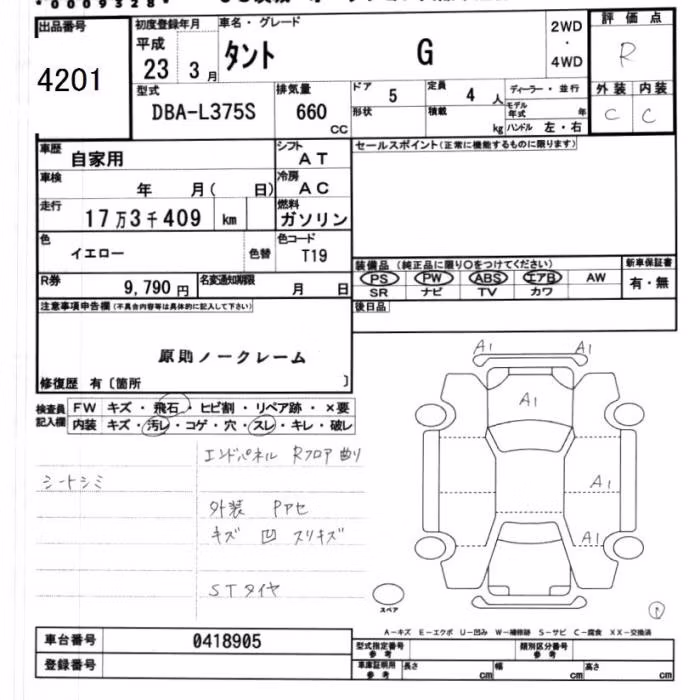 *0009328*
出品番号
4201
初度登録年月
平成
23 3 月
車名・グレード
タント G
2WD
・
4WD
評価点
R
型式
DBA-L375S
排気量
660 CC
ドア 5
定員 4 人
ディーラー・並行
形状
積載 kg
モデル年式 年
ハンドル 左・右
外装 内装
C C
車歴 自家用
シフト AT
セールスポイント(正常に機能するものに限ります)
車検 年 月( 日)
冷房 AC
走行 17万3千409 km
燃料 ガソリン
色 イエロー 色替
色コード T19
装備品 (純正品に限り○をつけてください)
新車保証書
PS PW ABS エアB AW
有・無
SR ナビ TV カワ
R券 9,790 円
名変通知期限 月 日
後日品
注意事項申告欄(不具合内容等は具体的に記入して下さい)
原則ノークレーム
修復歴 有〔箇所 〕
検査員記入欄
FW キズ・飛石・ヒビ割・リペア跡・×要
内装 キズ・汚レ・コゲ・穴・スレ・キレ・破レ
エンドパネル Rフロア曲り
シートシミ
外装 Pアセ
キズ 凹 スリキズ
STタイヤ
A1 A1
A1
A1
A1
スペア
A-キズ E-エクボ U-凹み W-補修跡 S-サビ C-腐食 XX-交換済
車台番号 0418905
型式指定番号 参考
類別区分番号 参考
登録番号
車庫証明用 参考
長さ cm 幅 cm 高さ cm